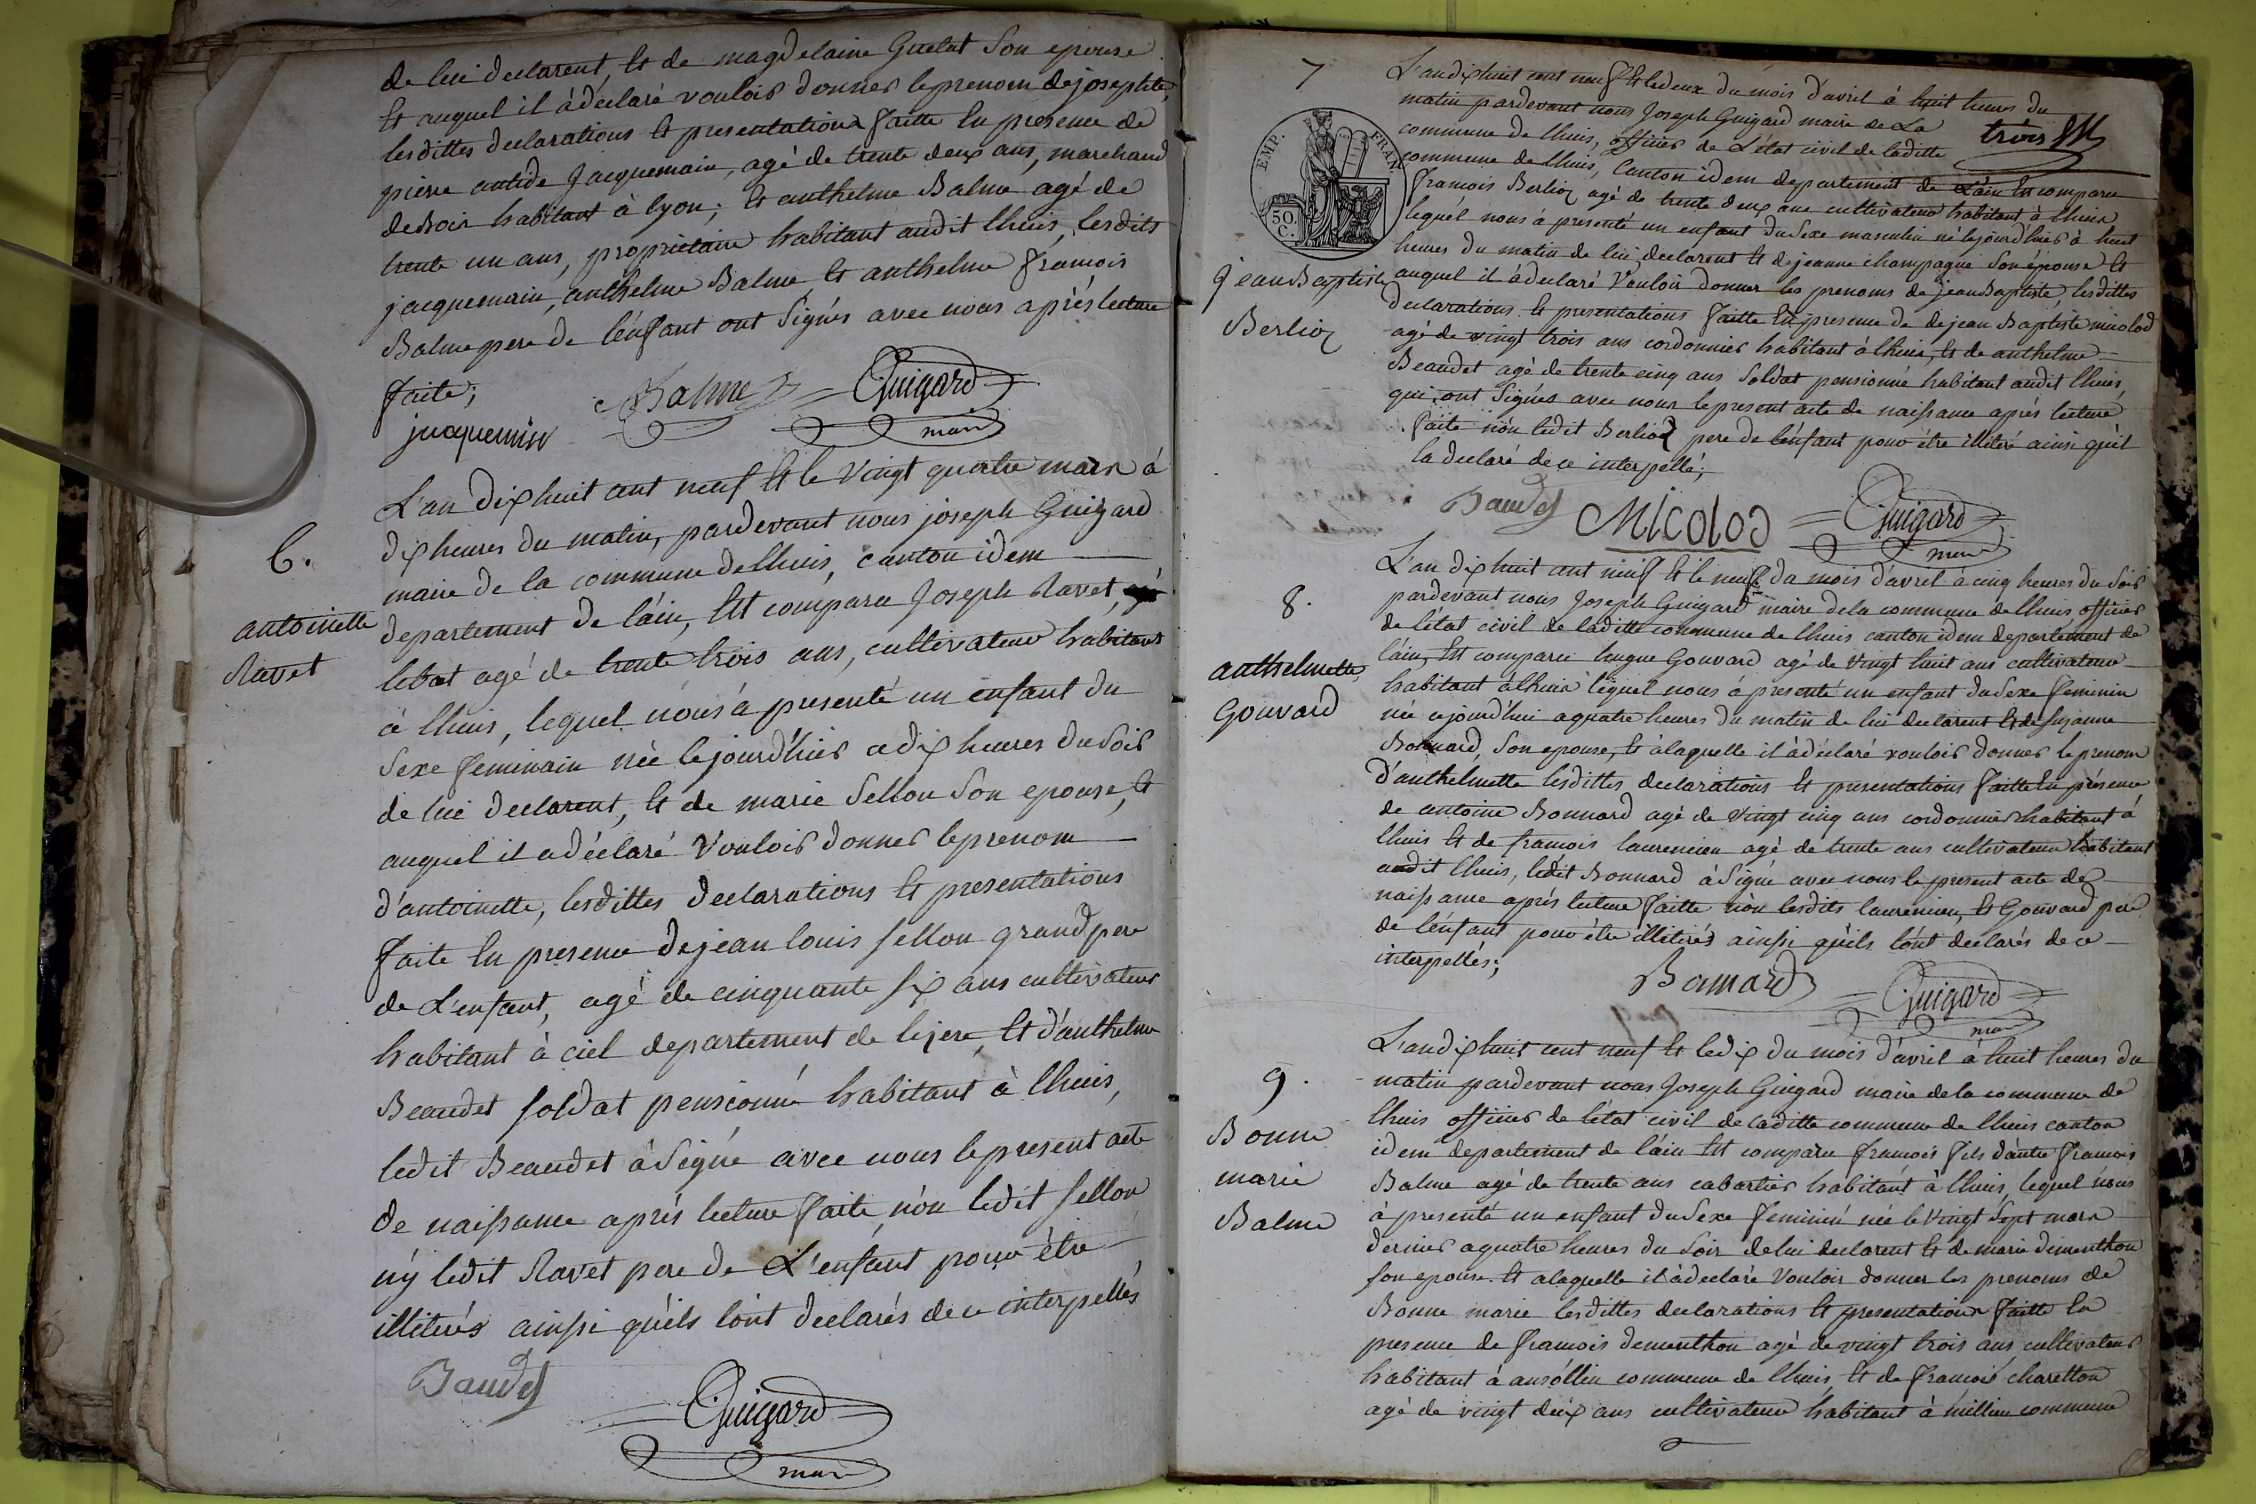 de lui declarent, et de magdelaine Guelat son epouse
et auquel il à déclaré vouloir donner le prenom de josephte,
lesdittes declarations et presentations faitte en presence de
pierre antide Jacquemain, agé de trente deux ans, marchand
de Bois habitant à lyon; et anthelme Balme agé de
trente un ans, propriétaire habitant audit lhuis, lesdits
jacquemain, anthelme Balme et anthelme françois
Balme pere de l'enfant ont signés avec nous après lecture
faite;
Balme Guigard
jacquemin maire
6.
antoinette
Ravet
L'an dix huit cent neuf et le vingt quatre mars à
dix heures du matin, pardevant nous joseph Guigard
maire de la commune de lhuis, canton idem
departement de l'ain, est comparu Joseph Ravet,
lebat agé de trente trois ans, cultivateur habitant
à lhuis, lequel nous à presenté un enfant du
sexe feminain née le jourd'hier a dix heures du soir
de lui declarent, et de marie Sellon son epouse, et
auquel il a déclaré vouloir donner le prenom
d'antoinette, lesdittes declarations et presentations
faite en presence de jean louis sellon grand pere
de L'enfant, agé de cinquante six ans cultivateur
habitant à ciel departement de lizere, et d'anthelme
Beaudet soldat pensionné habitant à lhuis,
ledit Beaudet à signé avec nous le present acte
de naissance après lecture faite, non ledit sellon
n'y ledit Ravet pere de L'enfant pour être
illiterés ainssi qu'ils l'ont declarés de ce interpellés
Baudet
Guigard
maire
7
EMP. FRAN
50. C.
jean Baptiste
Berlioz
L'an dix huit cent neuf et le deux du mois d'avril à huit heures du
matin pardevant nous Joseph Guigard maire de La
commune de lhuis, officier de L'état civil de laditte
trois
commune de lhuis, Canton idem departement de L'ain est comparu
françois Berlioz agé de trente deux ans cultivateur habitant à lhuis
lequel nous à presenté un enfant du sexe masculin né le jourd'hier à huit
heures du matin de lui declarent et de jeanne champagne son épouse et
auquel il à declaré Vouloir donner les prenoms de jean Baptiste, lesdittes
declarations et presentations faitte en presence de de jean Baptiste micolod
agé de vingt trois ans cordonnier habitant à lhuis, et de anthelme
Beaudet agé de trente cinq ans soldat pensionné habitant audit lhuis,
qui ont signés avec nous le present acte de naissance après lecture
faite non ledit Berlioz pere de l'enfant pour être illiteré ainsi qu'il
la declaré de ce interpellé;
Baudet Micolod Guigard
maire
8.
anthelmette
Gouvard
L'an dix huit cent neuf et le neuf du mois d'avril à cinq heures du soir
pardevant nous Joseph Guigard maire de la commune de lhuis officier
de l'état civil de laditte commune de lhuis canton idem departement de
l'ain, est comparu hugue Gouvard agé de vingt huit ans cultivateur
habitant à lhuis lequel nous à presenté un enfant du sexe feminin
née cejourd'hui a quatre heures du matin de lui declarent et de suzanne
Bonnard, son epouse, et à laquelle il à déclaré vouloir donner le prenom
d'anthelmette lesdittes declarations et presentations faitte en présence
de antoine Bonnard agé de vingt cinq ans cordonnier habitant à
lhuis et de françois laurencien agé de trente ans cultivateur habitant
audit lhuis, ledit Bonnard à signé avec nous le present acte de
naissance après lecture faitte non lesdits laurencien, et Gouvard pere
de l'enfant pour être illiterés ainssi qu'ils l'ont declarés de ce
interpellés;
Bonnard Guigard
maire
9.
Bonne
marie
Balme
L'an dix huit cent neuf et le dix du mois d'avril à huit heures du
matin pardevant nous Joseph Guigard maire de la commune de
lhuis officier de l'état civil de laditte commune de lhuis canton
idem departement de l'ain est comparu françois fils d'autre françois
Balme agé de trente ans cabartier habitant à lhuis, lequel nous
à presenté un enfant du sexe feminin née le vingt sept mars
dernier a quatre heures du soir de lui declarent et de marie dementhon
son epouse. et a laquelle il à declaré vouloir donner les prenoms de
Bonne marie lesdittes declarations et presentations faitte en
presence de françois dementhon agé de vingt trois ans cultivateur
habitant à ansollin commune de lhuis et de françois charetton
agé de vingt deux ans cultivateur habitant à millieu commune